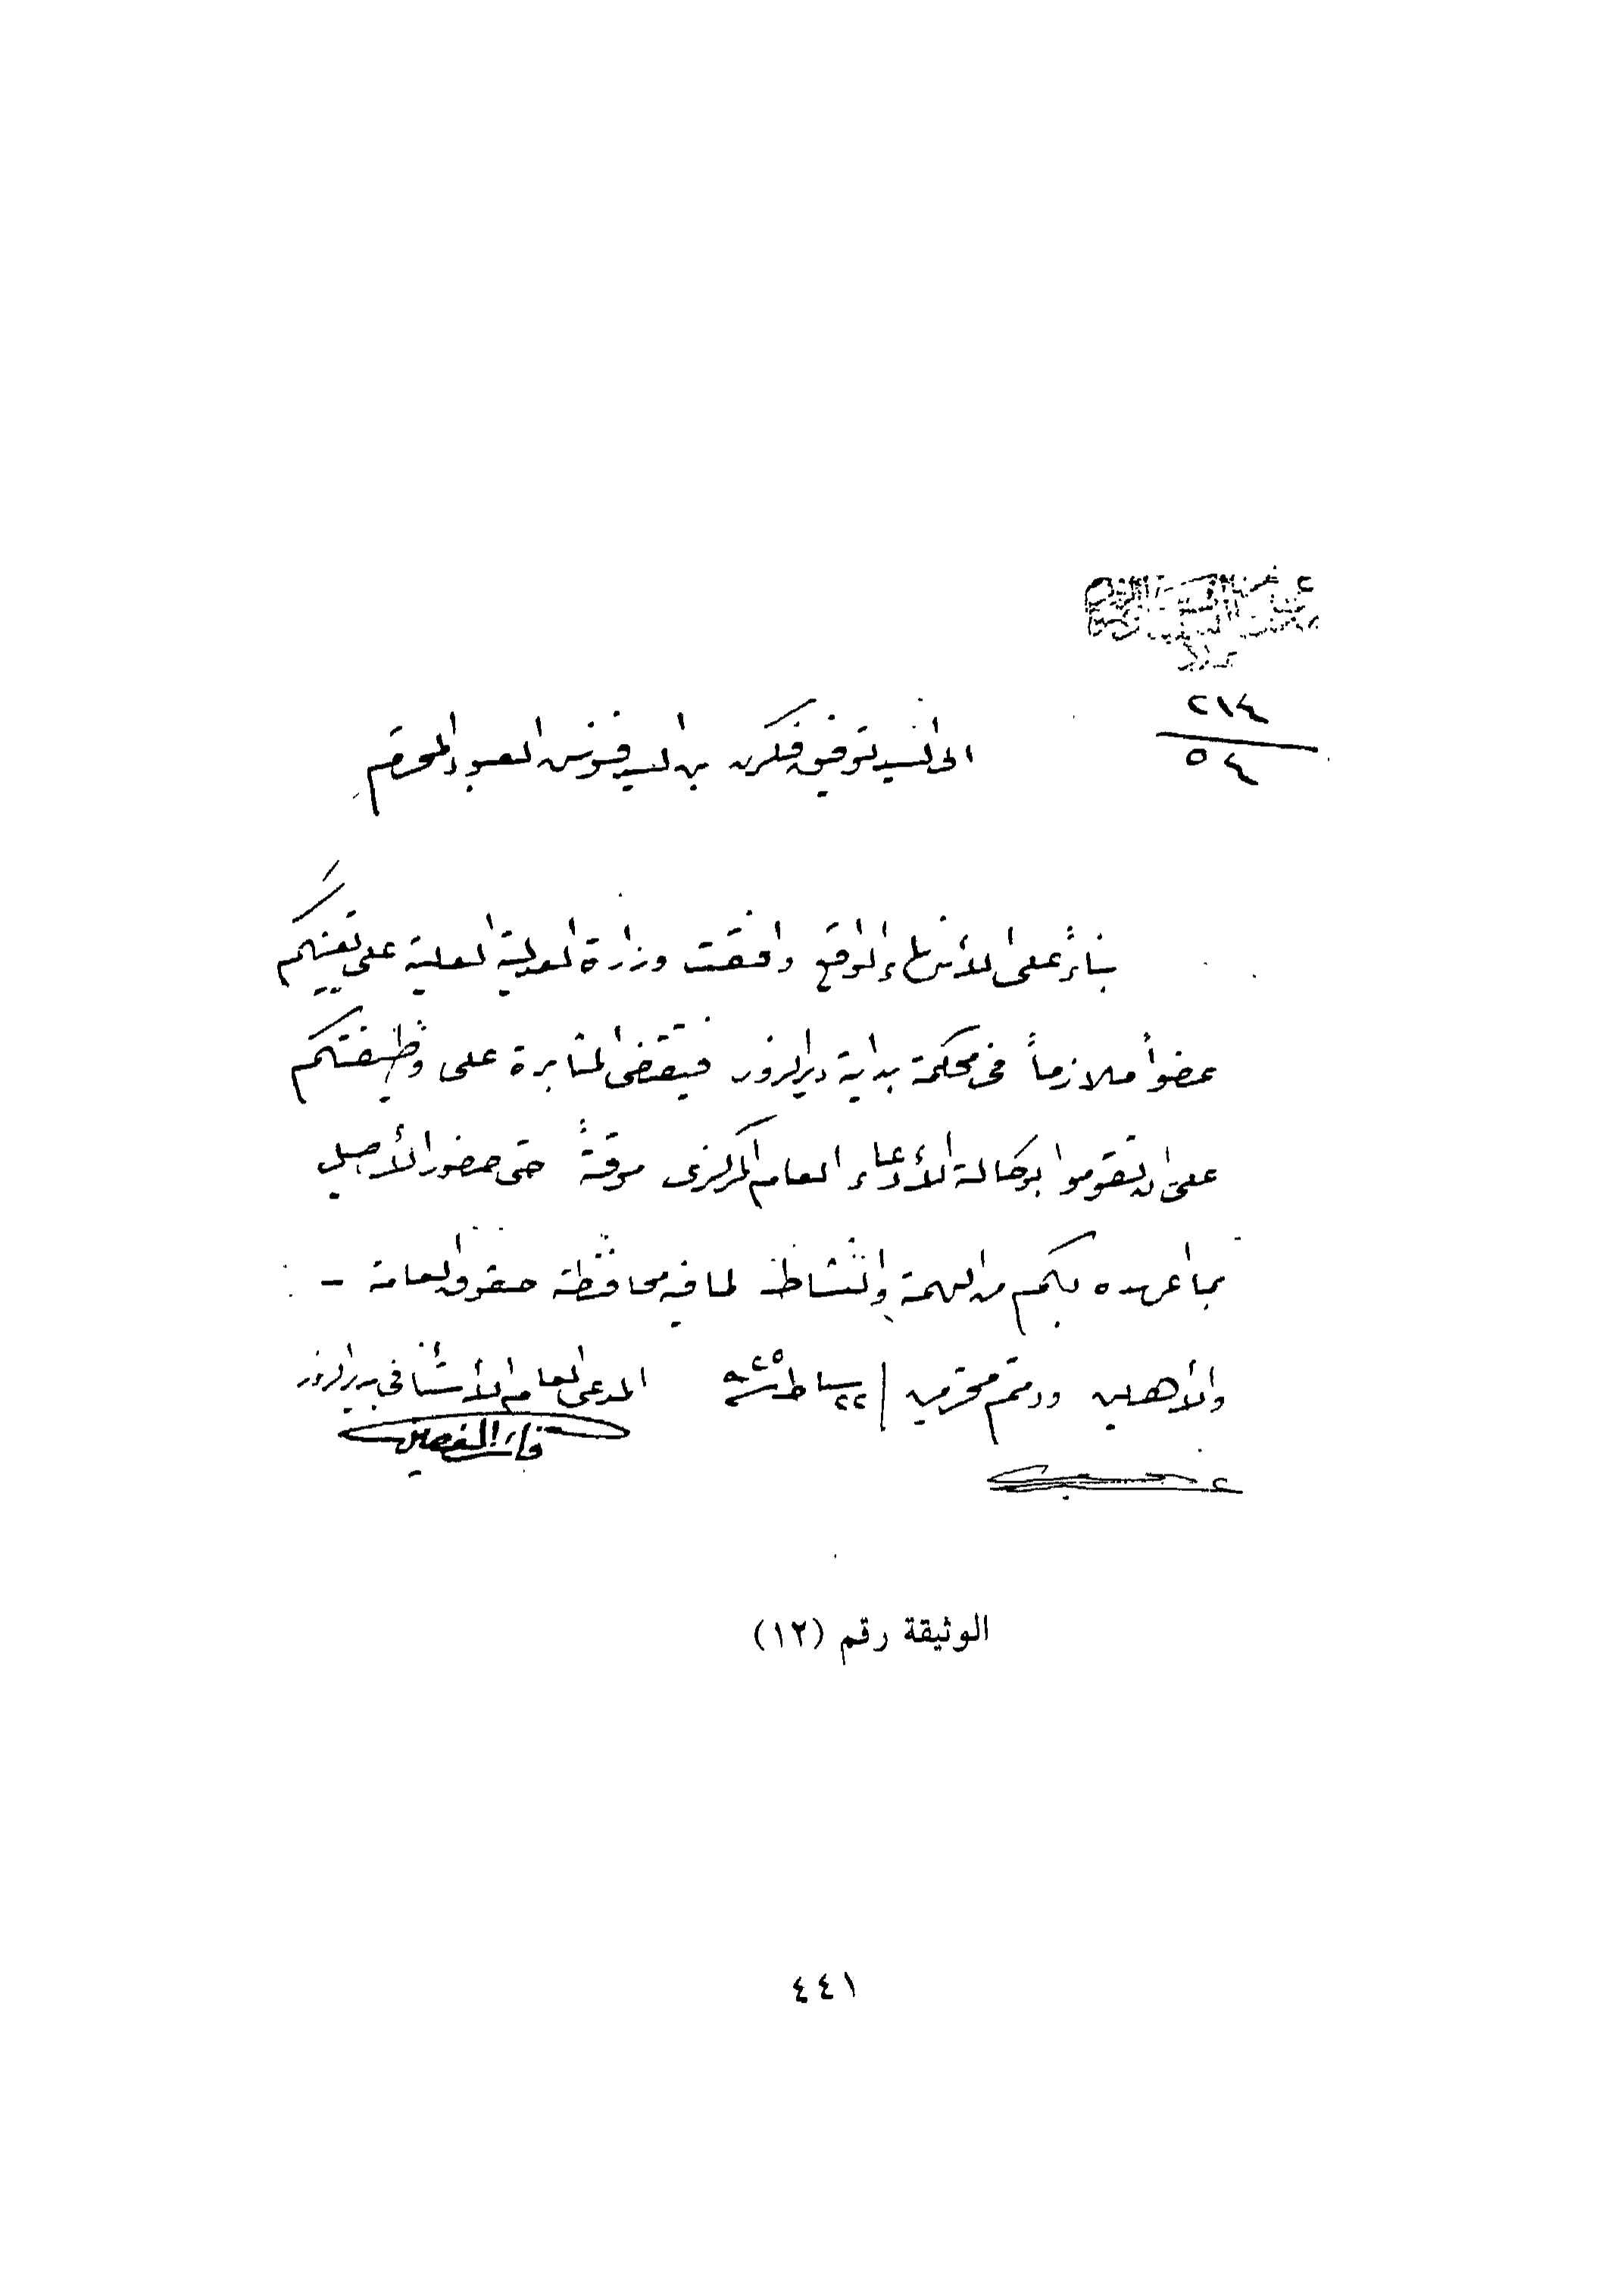 ٢١٤
٥٤
الى السيد توفيق فكرت بن السيد العبود المحترم
بناءً على الأنهاء الواقع وافقت وزارة العدلية العلية على تعيينكم
عضواً ملازماً في محكمة بداية ديرالزور فيقتضي المثابرة على وظيفتكم
على ان تقوموا بوكالة الأدعاء العام المركزي موقتةً حتى حضور الأصيل
بما عهد بكم من الهمة والنشاط لما فيه محافظة حقوق العامة -
والأهلين ودمتم محترمين / ٢٢ شباط سنة ٩٢٥ المدعي العام الأستئنافي بديرالزور
الوثيقة رقم (١٢)
٤٤١